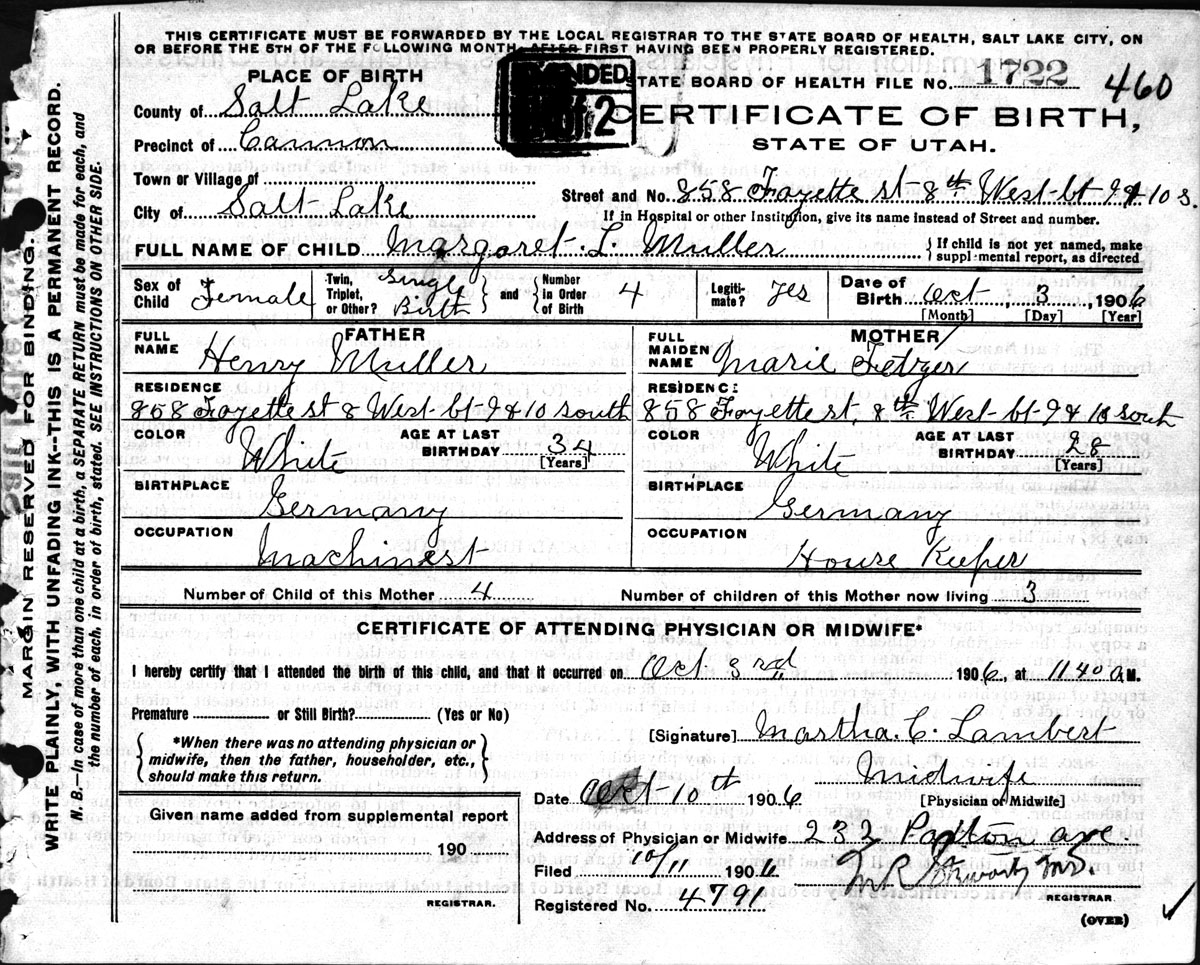 THIS CERTIFICATE MUST BE FORWARDED BY THE LOCAL REGISTRAR TO THE STATE BOARD OF HEALTH, SALT LAKE CITY, ON
OR BEFORE THE 5TH OF THE FOLLOWING MONTH, AFTER FIRST HAVING BEEN PROPERLY REGISTERED.
PLACE OF BIRTH
STATE BOARD OF HEALTH FILE NO. 1722 460
County of Salt Lake
CERTIFICATE OF BIRTH,
Precinct of Cannon
STATE OF UTAH.
Town or Village of
City of Salt Lake
Street and No. 858 Fayette st 8th West bt 9 & 10 s.
If in Hospital or other Institution, give its name instead of Street and number.
FULL NAME OF CHILD Margaret. L. Muller
{If child is not yet named, make supplemental report, as directed
Sex of Child Female
Twin, Triplet, or Other? Single Birth } and { Number in Order of Birth 4
Legitimate? Yes
Date of Birth Oct, 3, 1906
[Month] [Day] [Year]
FATHER
FULL NAME Henry Muller
RESIDENCE
858 Fayette st 8 West bt 9 & 10 south
COLOR White
AGE AT LAST BIRTHDAY 34
[Years]
BIRTHPLACE
Germany
OCCUPATION
Machinest
MOTHER
FULL MAIDEN NAME Marie Fetzer
RESIDENCE
858 Fayette st, 8th West bt 9 & 10 south
COLOR White
AGE AT LAST BIRTHDAY 28
[Years]
BIRTHPLACE
Germany
OCCUPATION
House Keeper
Number of Child of this Mother 4
Number of children of this Mother now living 3
CERTIFICATE OF ATTENDING PHYSICIAN OR MIDWIFE*
I hereby certify that I attended the birth of this child, and that it occurred on Oct 3rd, 1906, at 11 40 a M.
Premature or Still Birth? (Yes or No)
{*When there was no attending physician or midwife, then the father, householder, etc., should make this return.}
[Signature] Martha. C. Lambert
Midwife
[Physician or Midwife]
Date Oct 10th 1906
Given name added from supplemental report
190
REGISTRAR.
Address of Physician or Midwife 232 Paxton ave.
Filed 10/11 1906
M.D.
REGISTRAR.
Registered No. 4791
(OVER)
MARGIN RESERVED FOR BINDING.
WRITE PLAINLY, WITH UNFADING INK--THIS IS A PERMANENT RECORD.
N. B.—In case of more than one child at a birth, a SEPARATE RETURN must be made for each, and
the number of each, in order of birth, stated. SEE INSTRUCTIONS ON OTHER SIDE.